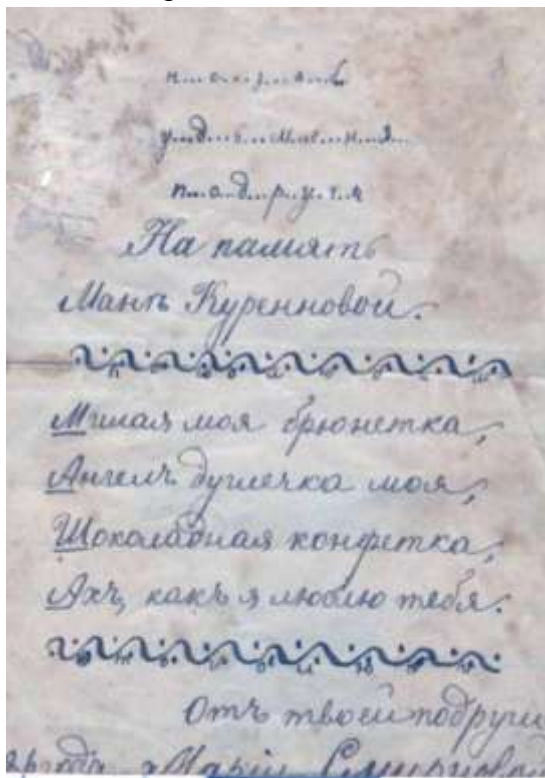 п...о...д...р...у...г...а
На память
Манѣ Куренновой.
Милая моя брюнетка,
Ангелъ душечка моя,
Шоколадная конфетка,
Ахъ, какъ я люблю тебя.
Отъ твоей подруги
Маріи Смирновой